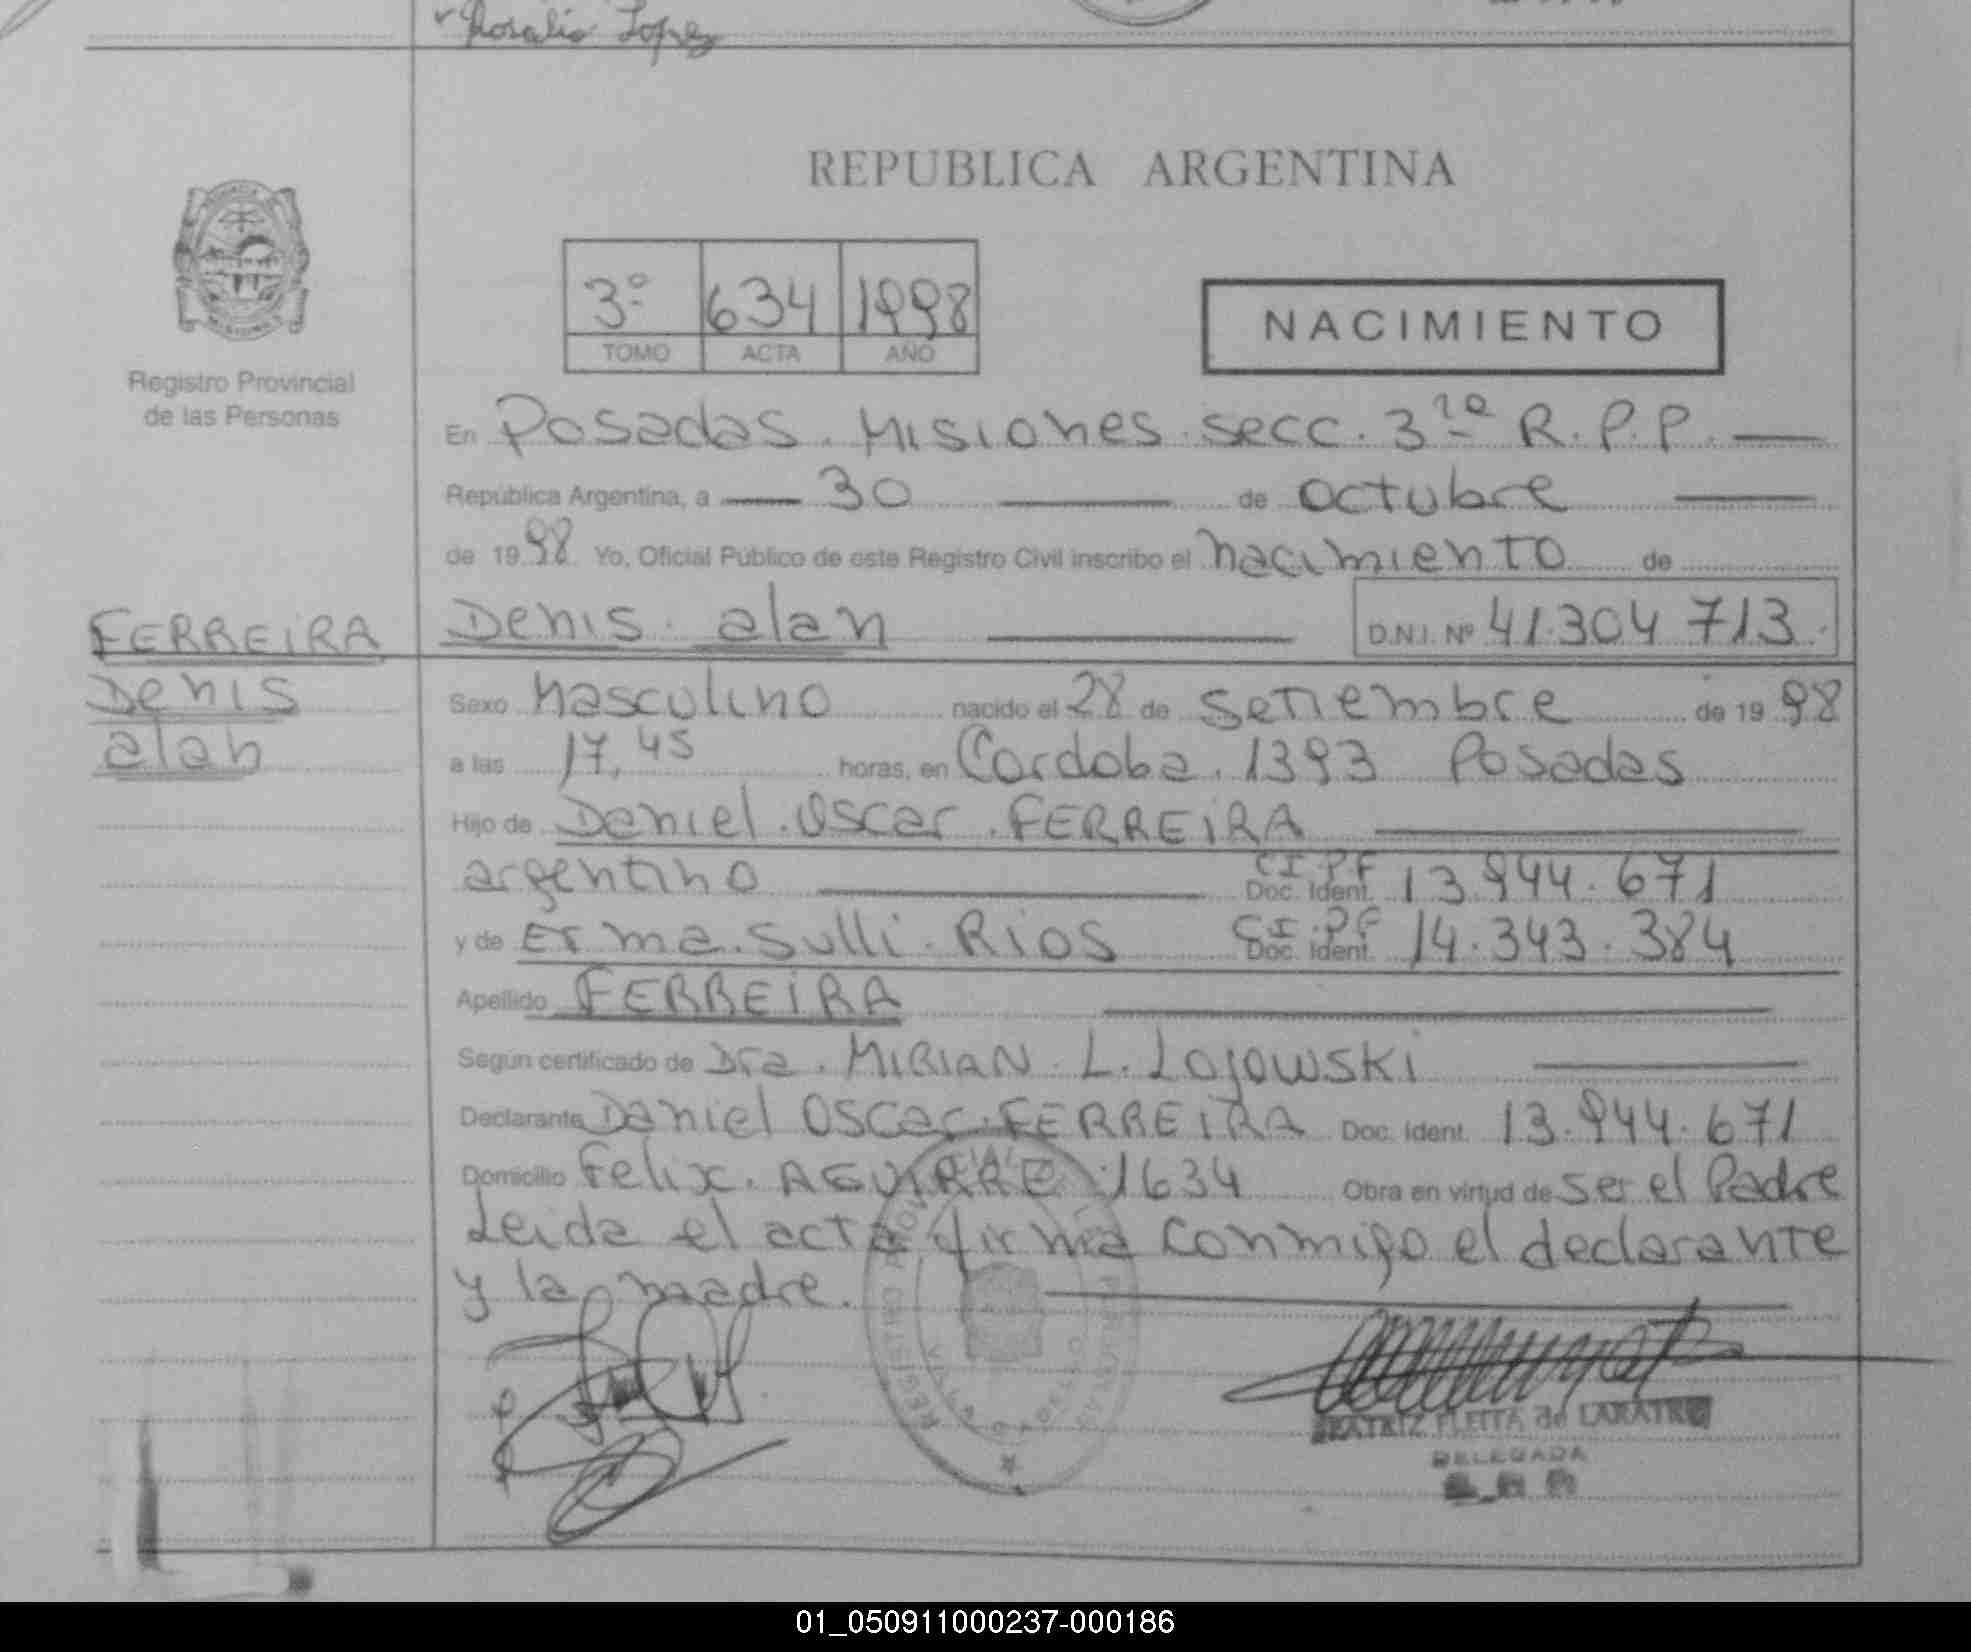 Rosalio Lopez
REPUBLICA ARGENTINA
3º 634 1998
TOMO ACTA AÑO
NACIMIENTO
Registro Provincial
de las Personas
En Posadas. Misiones. secc. 3ra R.P.P.
República Argentina, a 30 de octubre
de 1998 Yo, Oficial Público de este Registro Civil inscribo el nacimiento de
FERREIRA
Denis
alan
Denis. alan D.N.I. Nº 41.304 713.
Sexo Masculino nacido el 28 de Setiembre de 1998
a las 17,45 horas, en Cordoba. 1393 Posadas
Hijo de Daniel. Oscar. FERREIRA
argentino C.I.P.F Doc. Ident. 13.944.671
y de Erma. Sulli. Rios C.I.P.F Doc. Ident. 14.343.384
Apellido FERREIRA
Según certificado de Dra. MIRIAN. L. Lojowski
Declarante Daniel Oscar. FERREIRA Doc. Ident. 13.944.671
Domicilio Felix. AGUIRRE 1634 Obra en virtud de ser el Padre
Leida el acta firma conmigo el declarante
y la madre.
REGISTRO PROVINCIAL
BEATRIZ FLEITA de LARATRO
DELEGADA
01_050911000237-000186